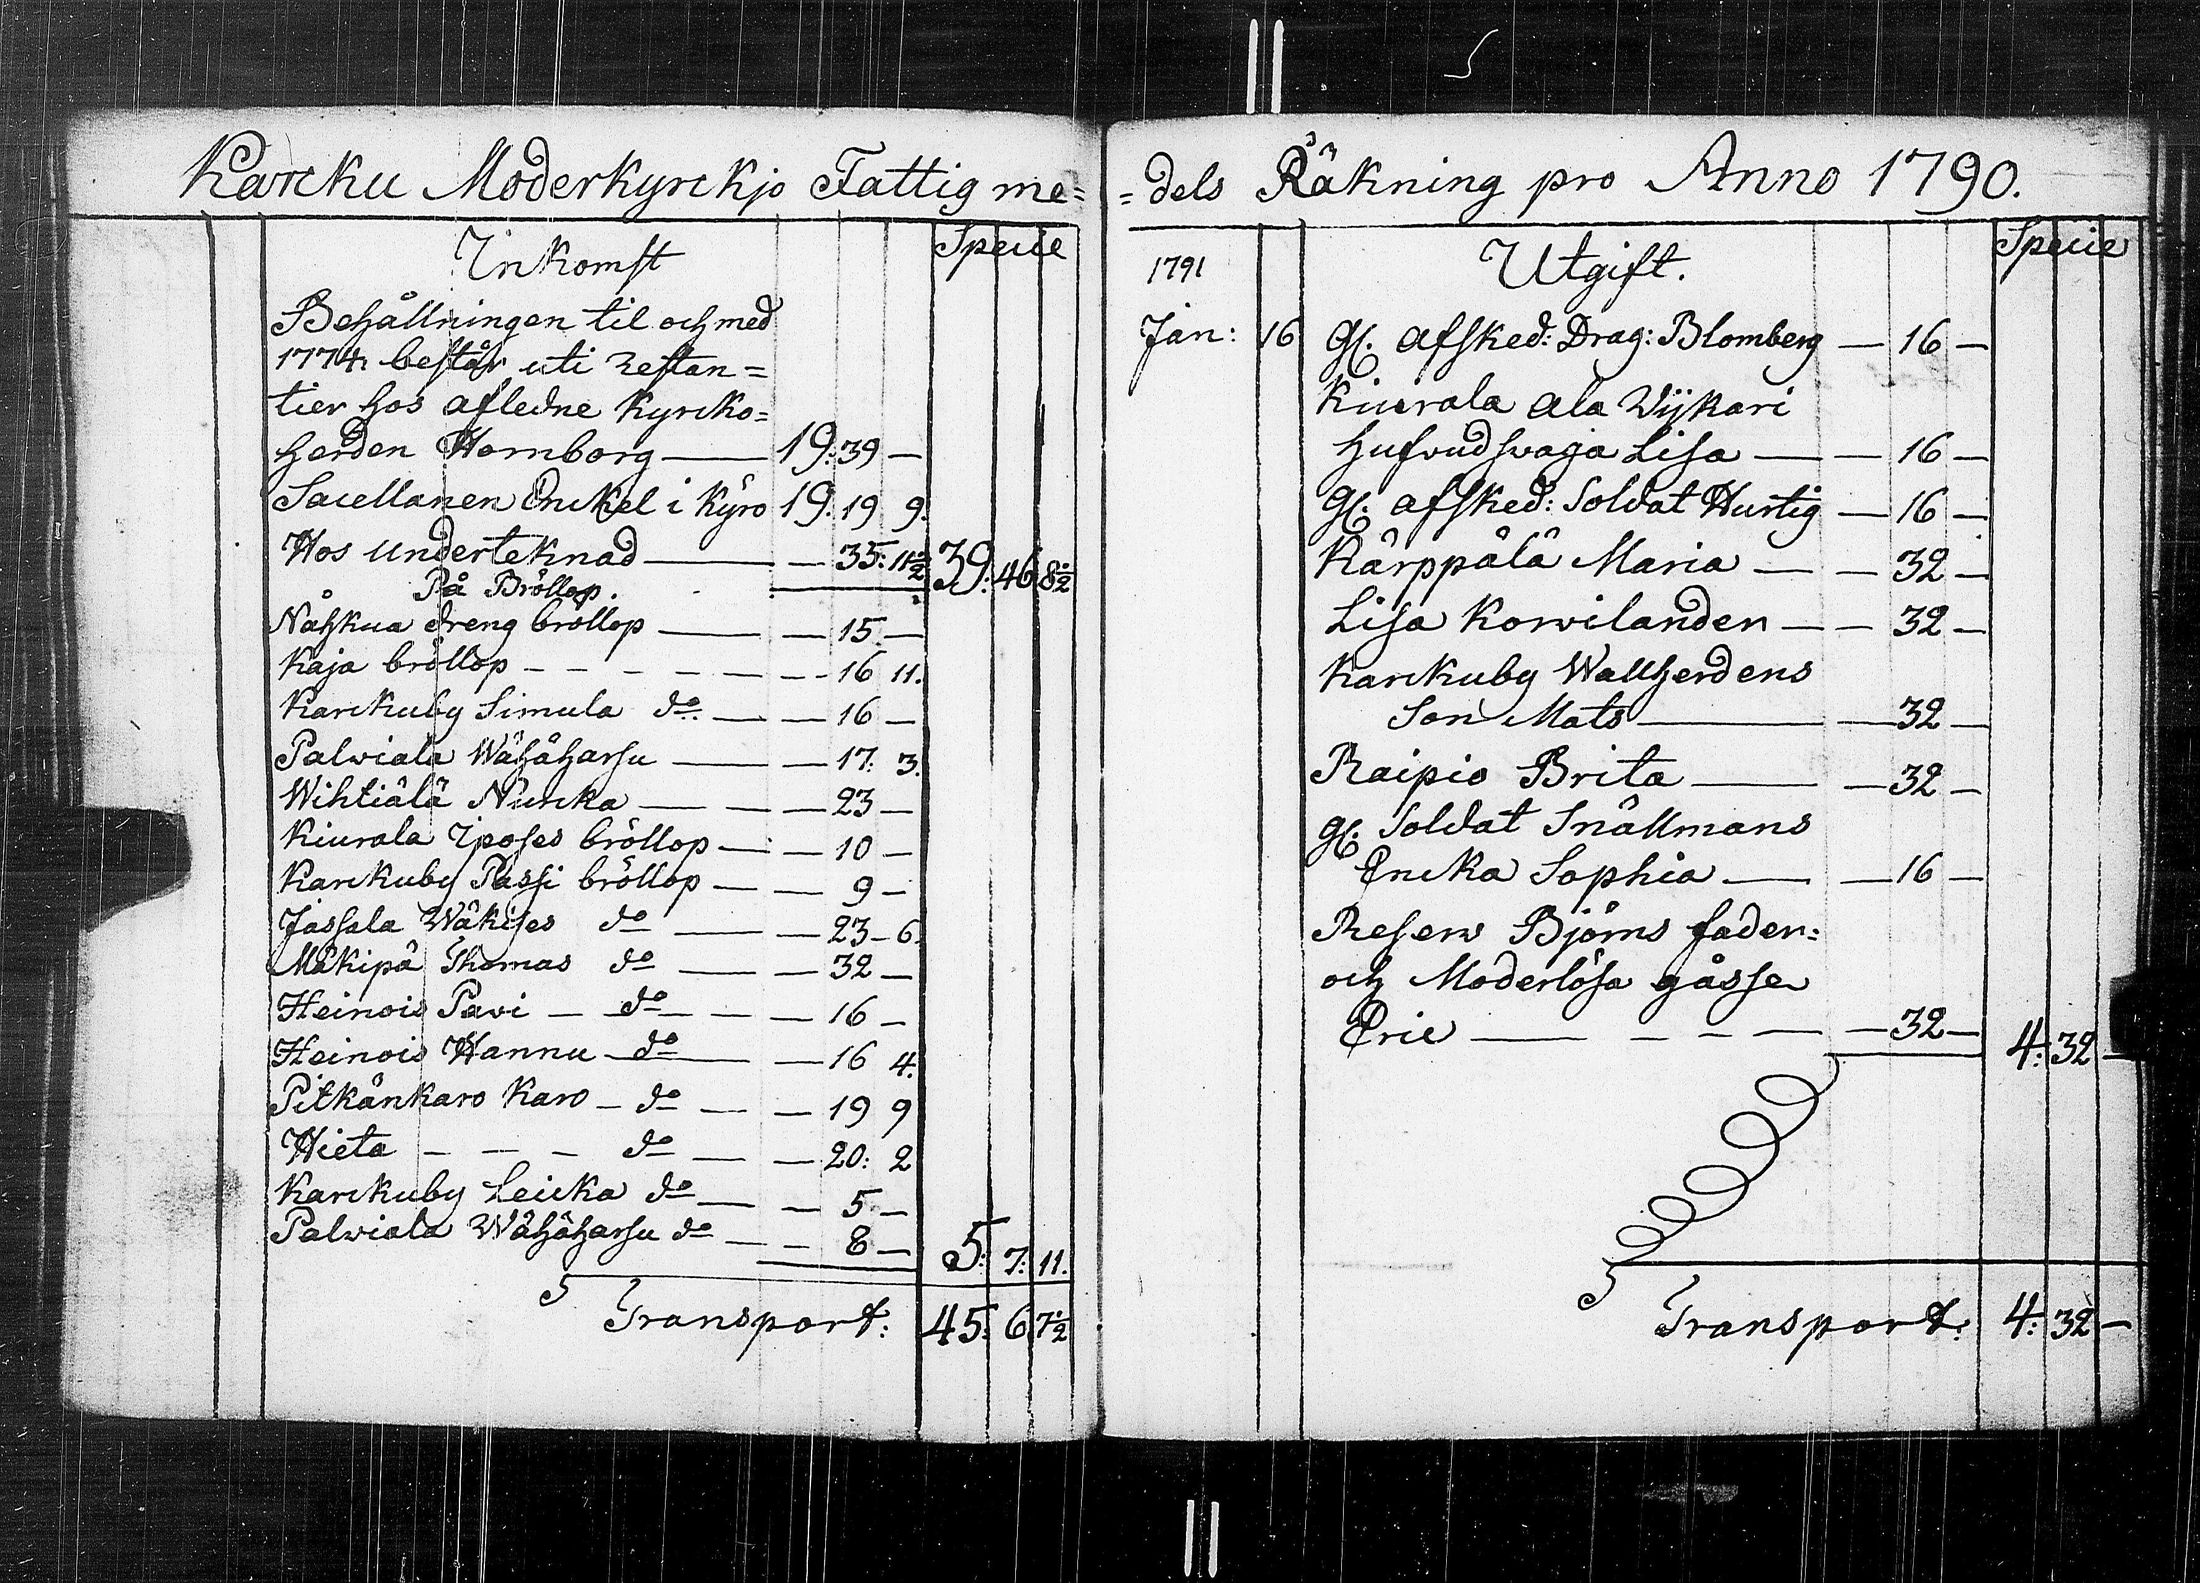 Karcku Moderkyrckjo Fattig me=
Inkomst Specie
Behållningen til och med
1774 består uti restan=
tier hos afledne Kyrcko=
herden Homborg — 19: 39 —
Sacellanen Enckel i Kyro 19. 19 9.
Hos underteknad — — 35: 11½ 39: 46 8½
På Bröllop.
Nåhkua dreng bröllop — — 15 —
Kaja bröllop — — 16 11.
Karckuby Simula do. — — 16 —
Palviala Wähäharsu — — 17: 3.
Wihtiälä Nucka — — 23 —
Kiurala Iposes bröllop — — 10 —
Karckuby Passi bröllop — — 9 —
Jassala Wäkises do — — 23 — 6.
Mäkipä Thomas do — — 32 —
Heinois Pavi — do — — 16 —
Heinois Hannu — do — — 16 4.
Pitkänkaro Karo — do — — 19 9
Hieta — — — do — — 20: 2
Karckuby Leicka do — — 5 —
Palviala Wähäharsu do — — 8 — 5: 7: 11.
Transport: 45: 6 7½
=dels Räkning pro Anno 1790.
1791 Utgift. Specie
Jan: 16 Gl. afsked: Drag: Blomberg — 16 —
Kiurala Ala Wijkari
hufvudsvaga Lisa — — 16 —
Gl. afsked: Soldat Hurtig — 16 —
Kärppälä Maria — — 32 —
Lisa Korvilander — — 32 —
Karckuby Wallherdens
Son Mats — — 32 —
Raipio Brita — — 32 —
gl. Soldat Snällmans
Encka Sophia — — 16 —
Reserv Björns fader=
och Moderlösa gåsse
Eric — — — — — 32 — 4: 32 —
Transport: 4: 32 —